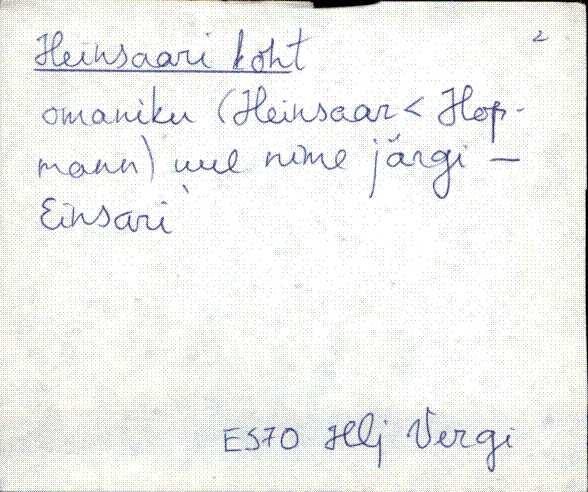 Heinsaari koht 2
omaniku (Heinsaar < Hop-
mann) uue nime järgi —
Einsari`
ES70 Hlj Vergi